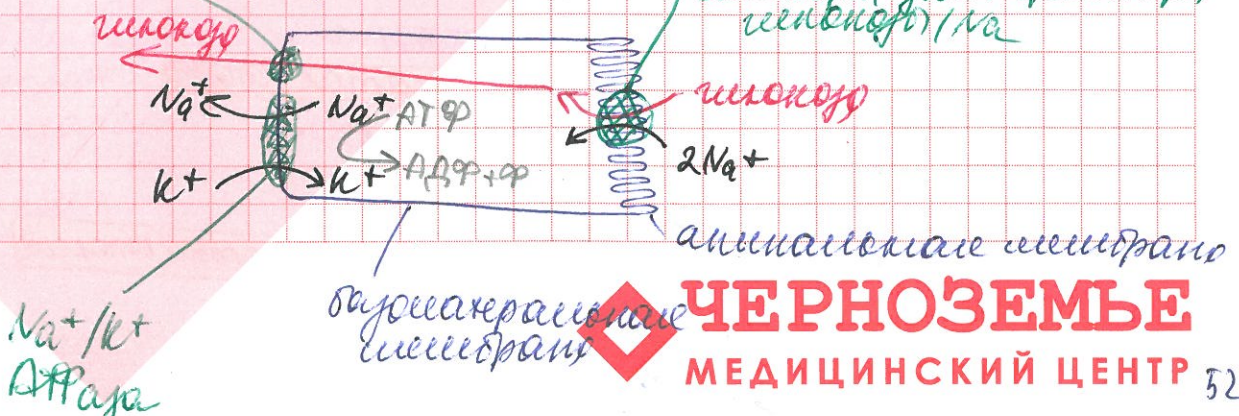 глюкоза
глюкозы/Na
Na⁺ Na⁺ АТФ
глюкоза
K⁺ K⁺ АДФ+Ф
2Na⁺
апикальная мембрана
базолатеральная
мембрана
Na⁺/K⁺
АТФаза
ЧЕРНОЗЕМЬЕ
МЕДИЦИНСКИЙ ЦЕНТР 52